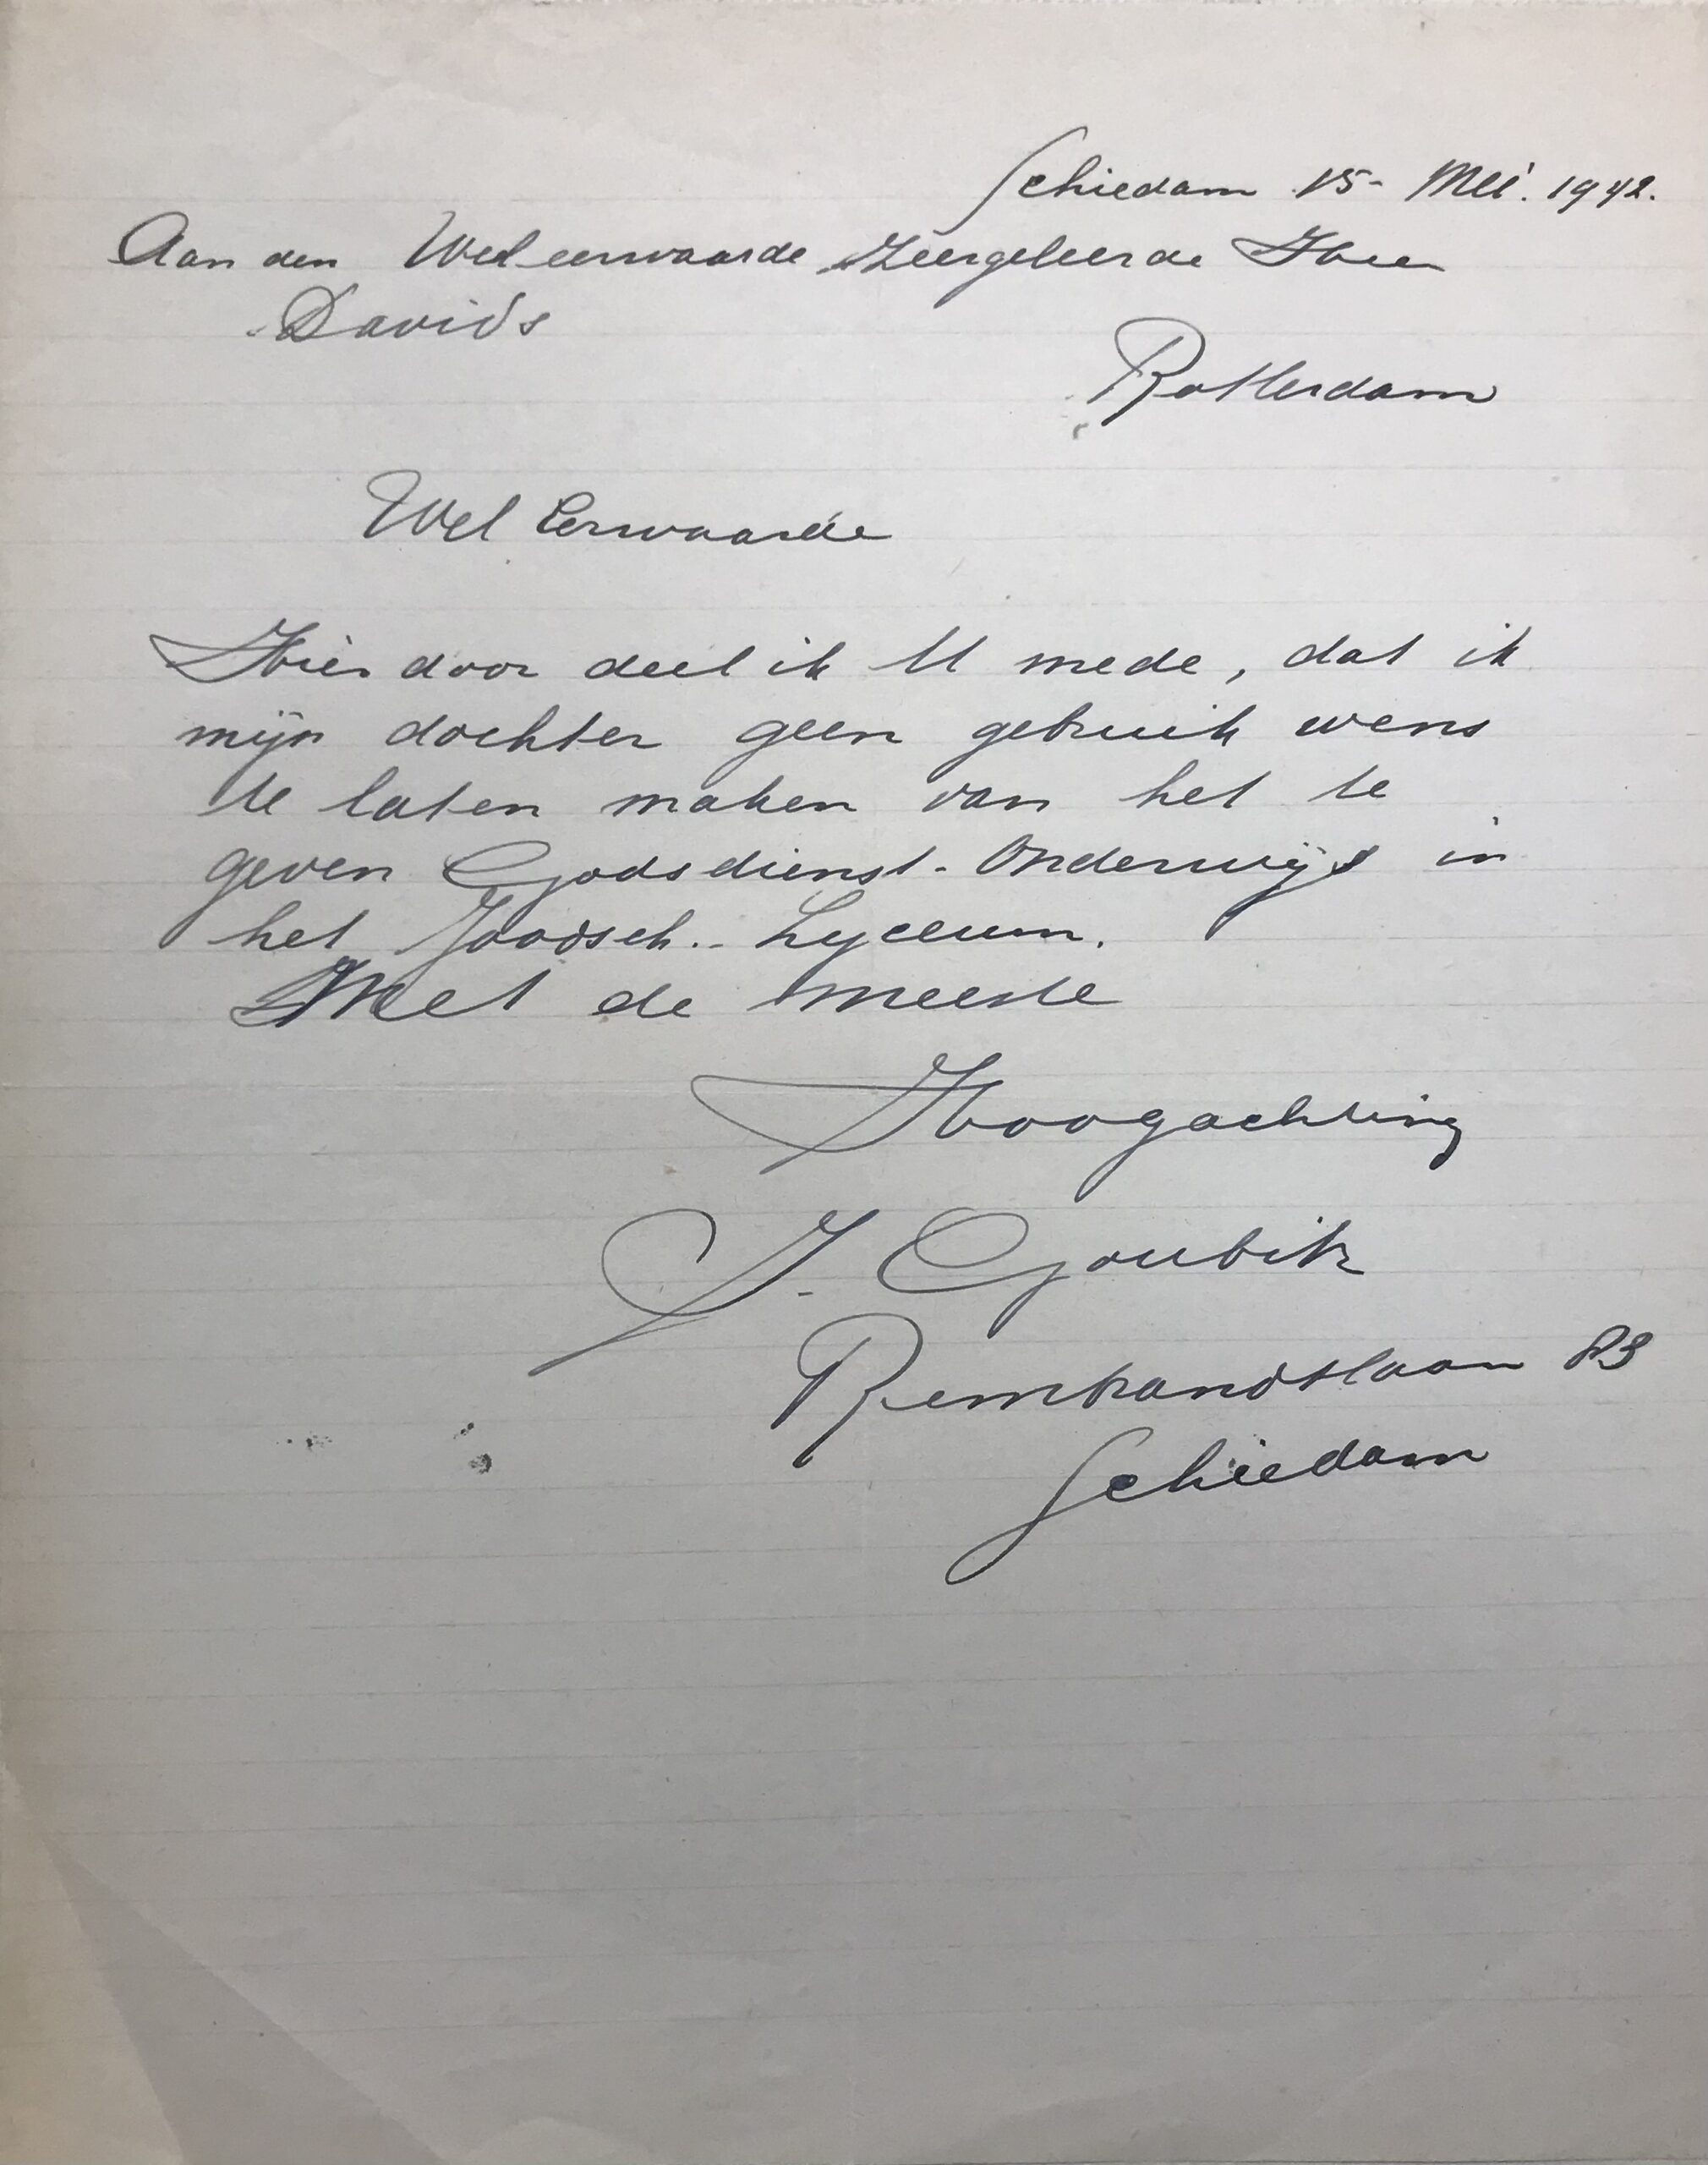 Schiedam 15- Mei. 1942.
Aan den Weleerwaarde Zeergeleerde Heer
Davids
Rotterdam
Wel Eerwaarde
Hierdoor deel ik U mede, dat ik
mijn dochter geen gebruik wens
te laten maken van het te
geven Godsdienst-Onderwijs in
het Joodsch.- Lyceum.
Met de meeste
Hoogachting
J. Goubik
Rembrandtlaan 83
Schiedam